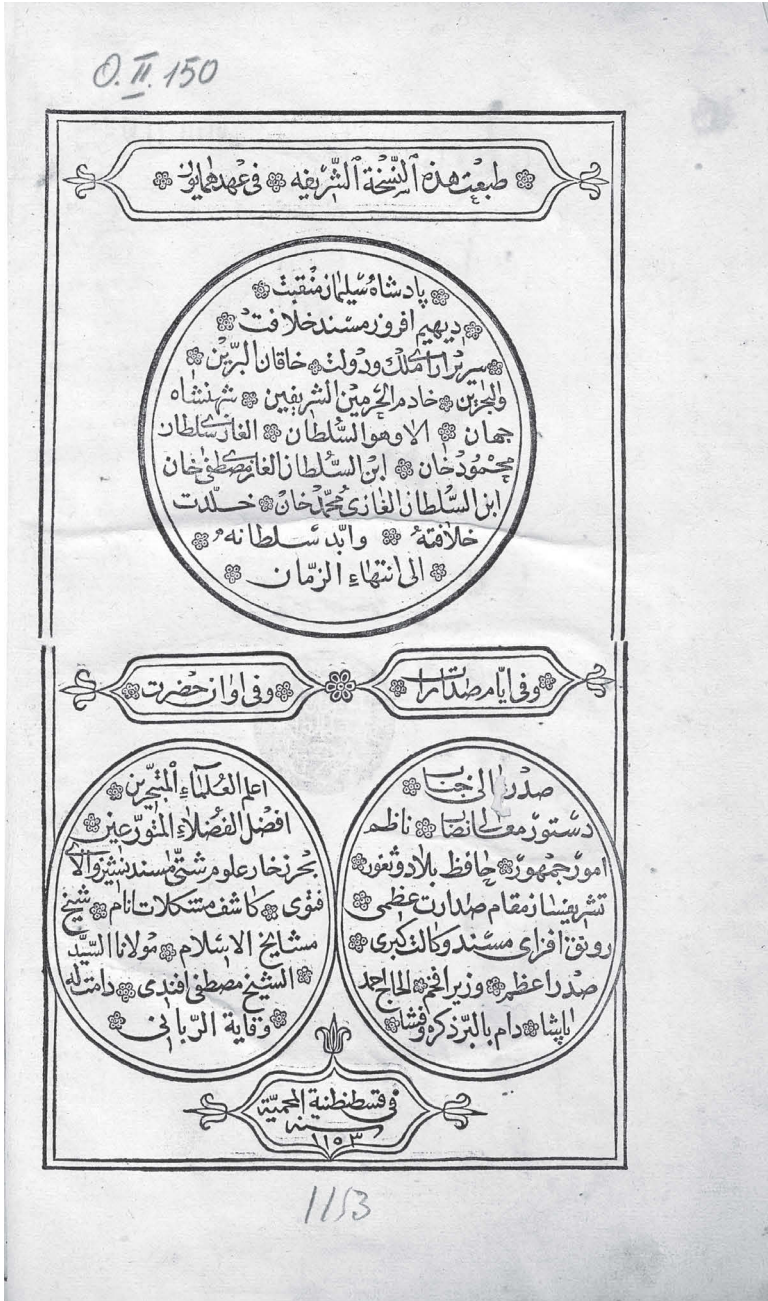 O.II.150
طبعت هذه النسخة الشريفه في عهد همايون
پادشاه سليمان منقبت
ديهيم افروز مسند خلافت
سرير آراى ملك ودولت خاقان البرّين
والبحرين خادم الحرمين الشريفين شهنشاه
جهان الا وهو السّلطان الغازى سلطان
محمود خان ابن السّلطان الغازى مصطفى خان
ابن السّلطان الغازى محمّد خان خلّدت
خلافته وابّد سلطانه
الى انتهاء الزّمان
وفى ايّام صدارت
صدر عالى جناب
دستور معالى نصاب ناظم
امور جمهور حافظ بلاد وثغور
تشريفساز مقام صدارت عظمى
رونق افزاى مسند وكالت كبرى
صدر اعظم وزير افخم الحاج احمد
پاشا دام بالبرّ ذكره وفشا
وفى اوان حضرت
اعلم العلمآء المتبحّرين
افضل الفضلاء المتورّعين
بحر زخار علوم شتّى مسند نشين والاى
فتوى كاشف مشكلات انام شيخ
مشايخ الاسلام مولانا السيّد
الشيخ مصطفى افندى دامت له
وقاية الربّانى
فى قسطنطنية المحميّة
سنه
١١٥٣
1153